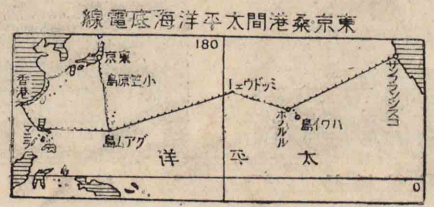 東京桑港間太平洋海底電線
180
東京
小笠原島
香港
マニラ
グアム島
ミッドウェー
ホノルル
ハワイ島
サンフランシスコ
太平洋
0